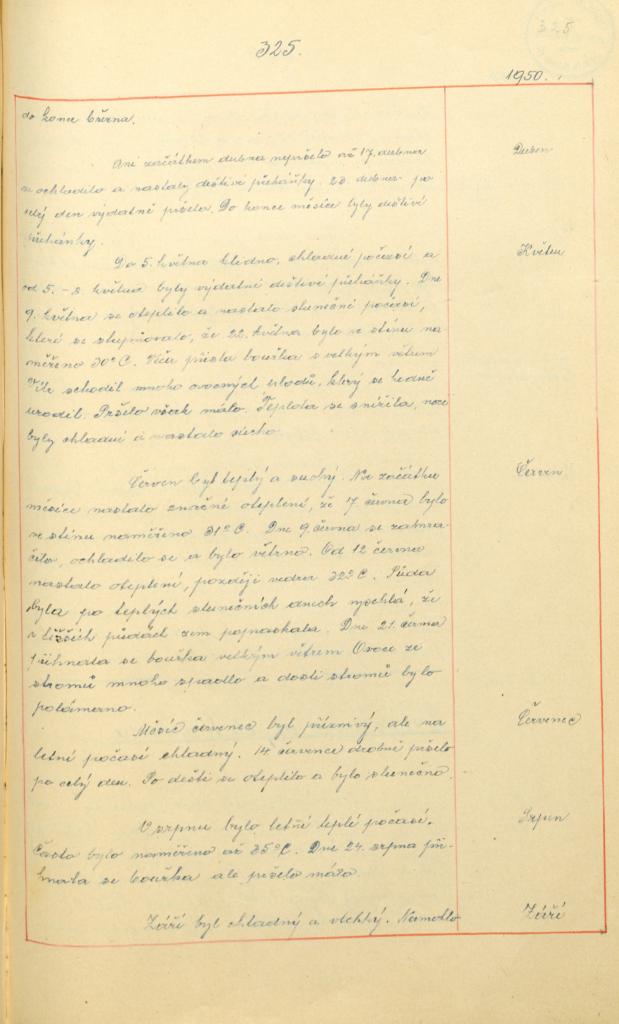 325
325.
1950.
do konce března.
Duben
Ani začátkem dubna nepršelo až 17. dubna
se ochladilo a nastaly deštivé přeháňky. 23. dubna po
celý den vydatně pršelo. Do konce měsíce byly deštivé
přeháňky.
Květen
Do 5. května klidno, chladné počasí a
od 5. – 8 května byly vydatné deštivé přeháňky. Dne
9. května se oteplilo a nastalo sluneční počasí,
které se stupňovalo, že 22. května bylo ve stínu na
měřeno 30° C. Večer přišla bouřka s velkým větrem
Vítr schodil mnoho ovocných plodů, který se hodně
urodil. Pršelo však málo. Teplota se snížila, noce
byly chladné a nastalo sucho.
Červen
Červen byl teplý a suchý. Na začátku
měsíce nastalo značné oteplení, že 17 června bylo
ve stínu naměřeno 31° C. Dne 9. června se zachmu-
řilo, ochladilo se a bylo větrno. Od 12 června
nastalo oteplení, později vedra 32° C. Půda
byla po teplých slunečních dnech vyschlá, že
v těžších půdách zem popraskala. Dne 21. června
přihnala se bouřka velkým větrem Ovoce ze
stromů mnoho spadlo a dosti stromů bylo
polámano.
Červenec
Měsíc červenec byl příznivý, ale na
letní počasí chladný. 14 července drobně pršelo
po celý den. Po dešti se oteplilo a bylo slunečno.
Srpen
V srpnu bylo letní teplé počasí.
Často bylo naměřeno až 35° C. Dne 24. srpna při-
hnala se bouřka ale pršelo málo.
Září
Září byl chladný a vlhký. Namoklo